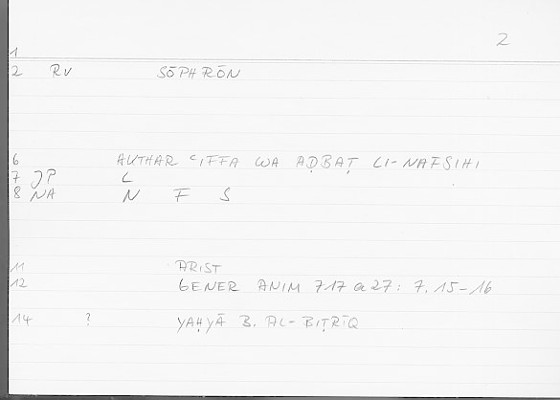 2
1
2 RV SŌPHRŌN
6 AKTHAR ʿIFFA WA AḌBAṬ LI-NAFSIHI
7 JP L
8 NA N F S
11 ARIST
12 GENER ANIM 717 a 27 : 7, 15-16
14 ? YAḤYĀ B. AL-BIṬRĪQ